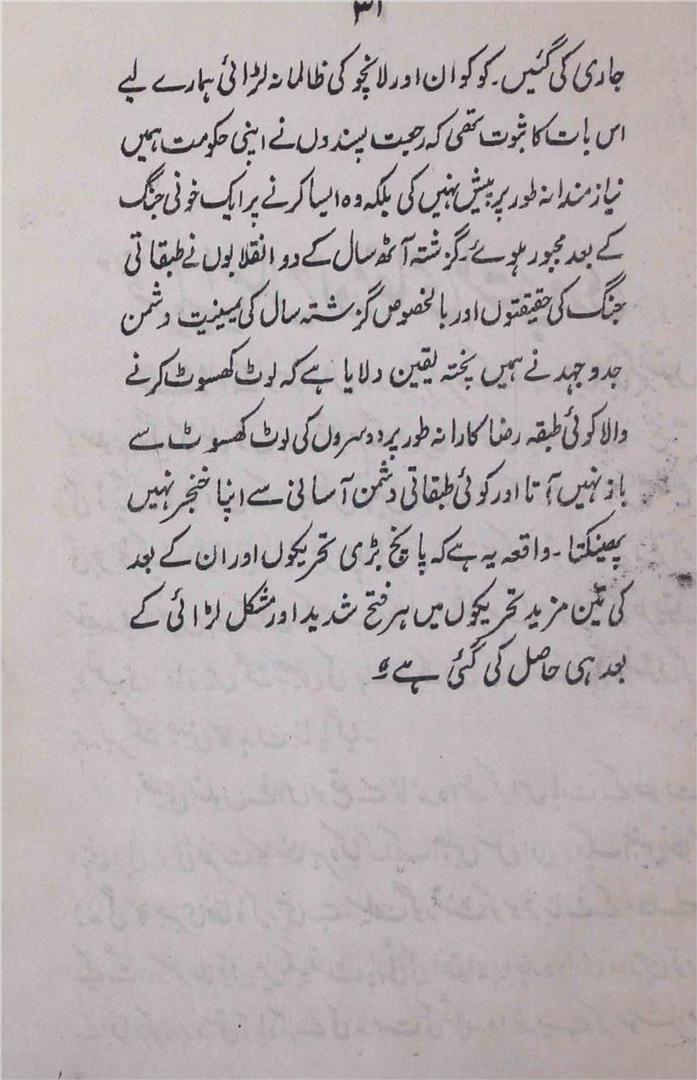 ۳۱
جاری کی گئیں۔ کوکوان اور لانچو کی ظالمانہ لڑائی ہمارے لیے
اس بات کا ثبوت تھی کہ رجعت پسندوں نے اپنی حکومت ہمیں
نیازمندانہ طور پر پیش نہیں کی بلکہ وہ ایسا کرنے پر ایک خونی جنگ
کے بعد مجبور ہوئے۔ گزشتہ آٹھ سال کے دو انقلابوں نے طبقاتی
جنگ کی حقیقتوں اور بالخصوص گزشتہ سال کی دشمن
جدوجہد نے ہمیں پختہ یقین دلایا ہے کہ لوٹ کھسوٹ کرنے
والا کوئی طبقہ رضاکارانہ طور پر دوسروں کی لوٹ کھسوٹ سے
باز نہیں آتا اور کوئی طبقاتی دشمن آسانی سے اپنا خنجر نہیں
پھینکتا۔ واقعہ یہ ہے کہ پانچ بڑی تحریکوں اور ان کے بعد
کی تین مزید تحریکوں میں ہر فتح شدید اور مشکل لڑائی کے
بعد ہی حاصل کی گئی ہے"